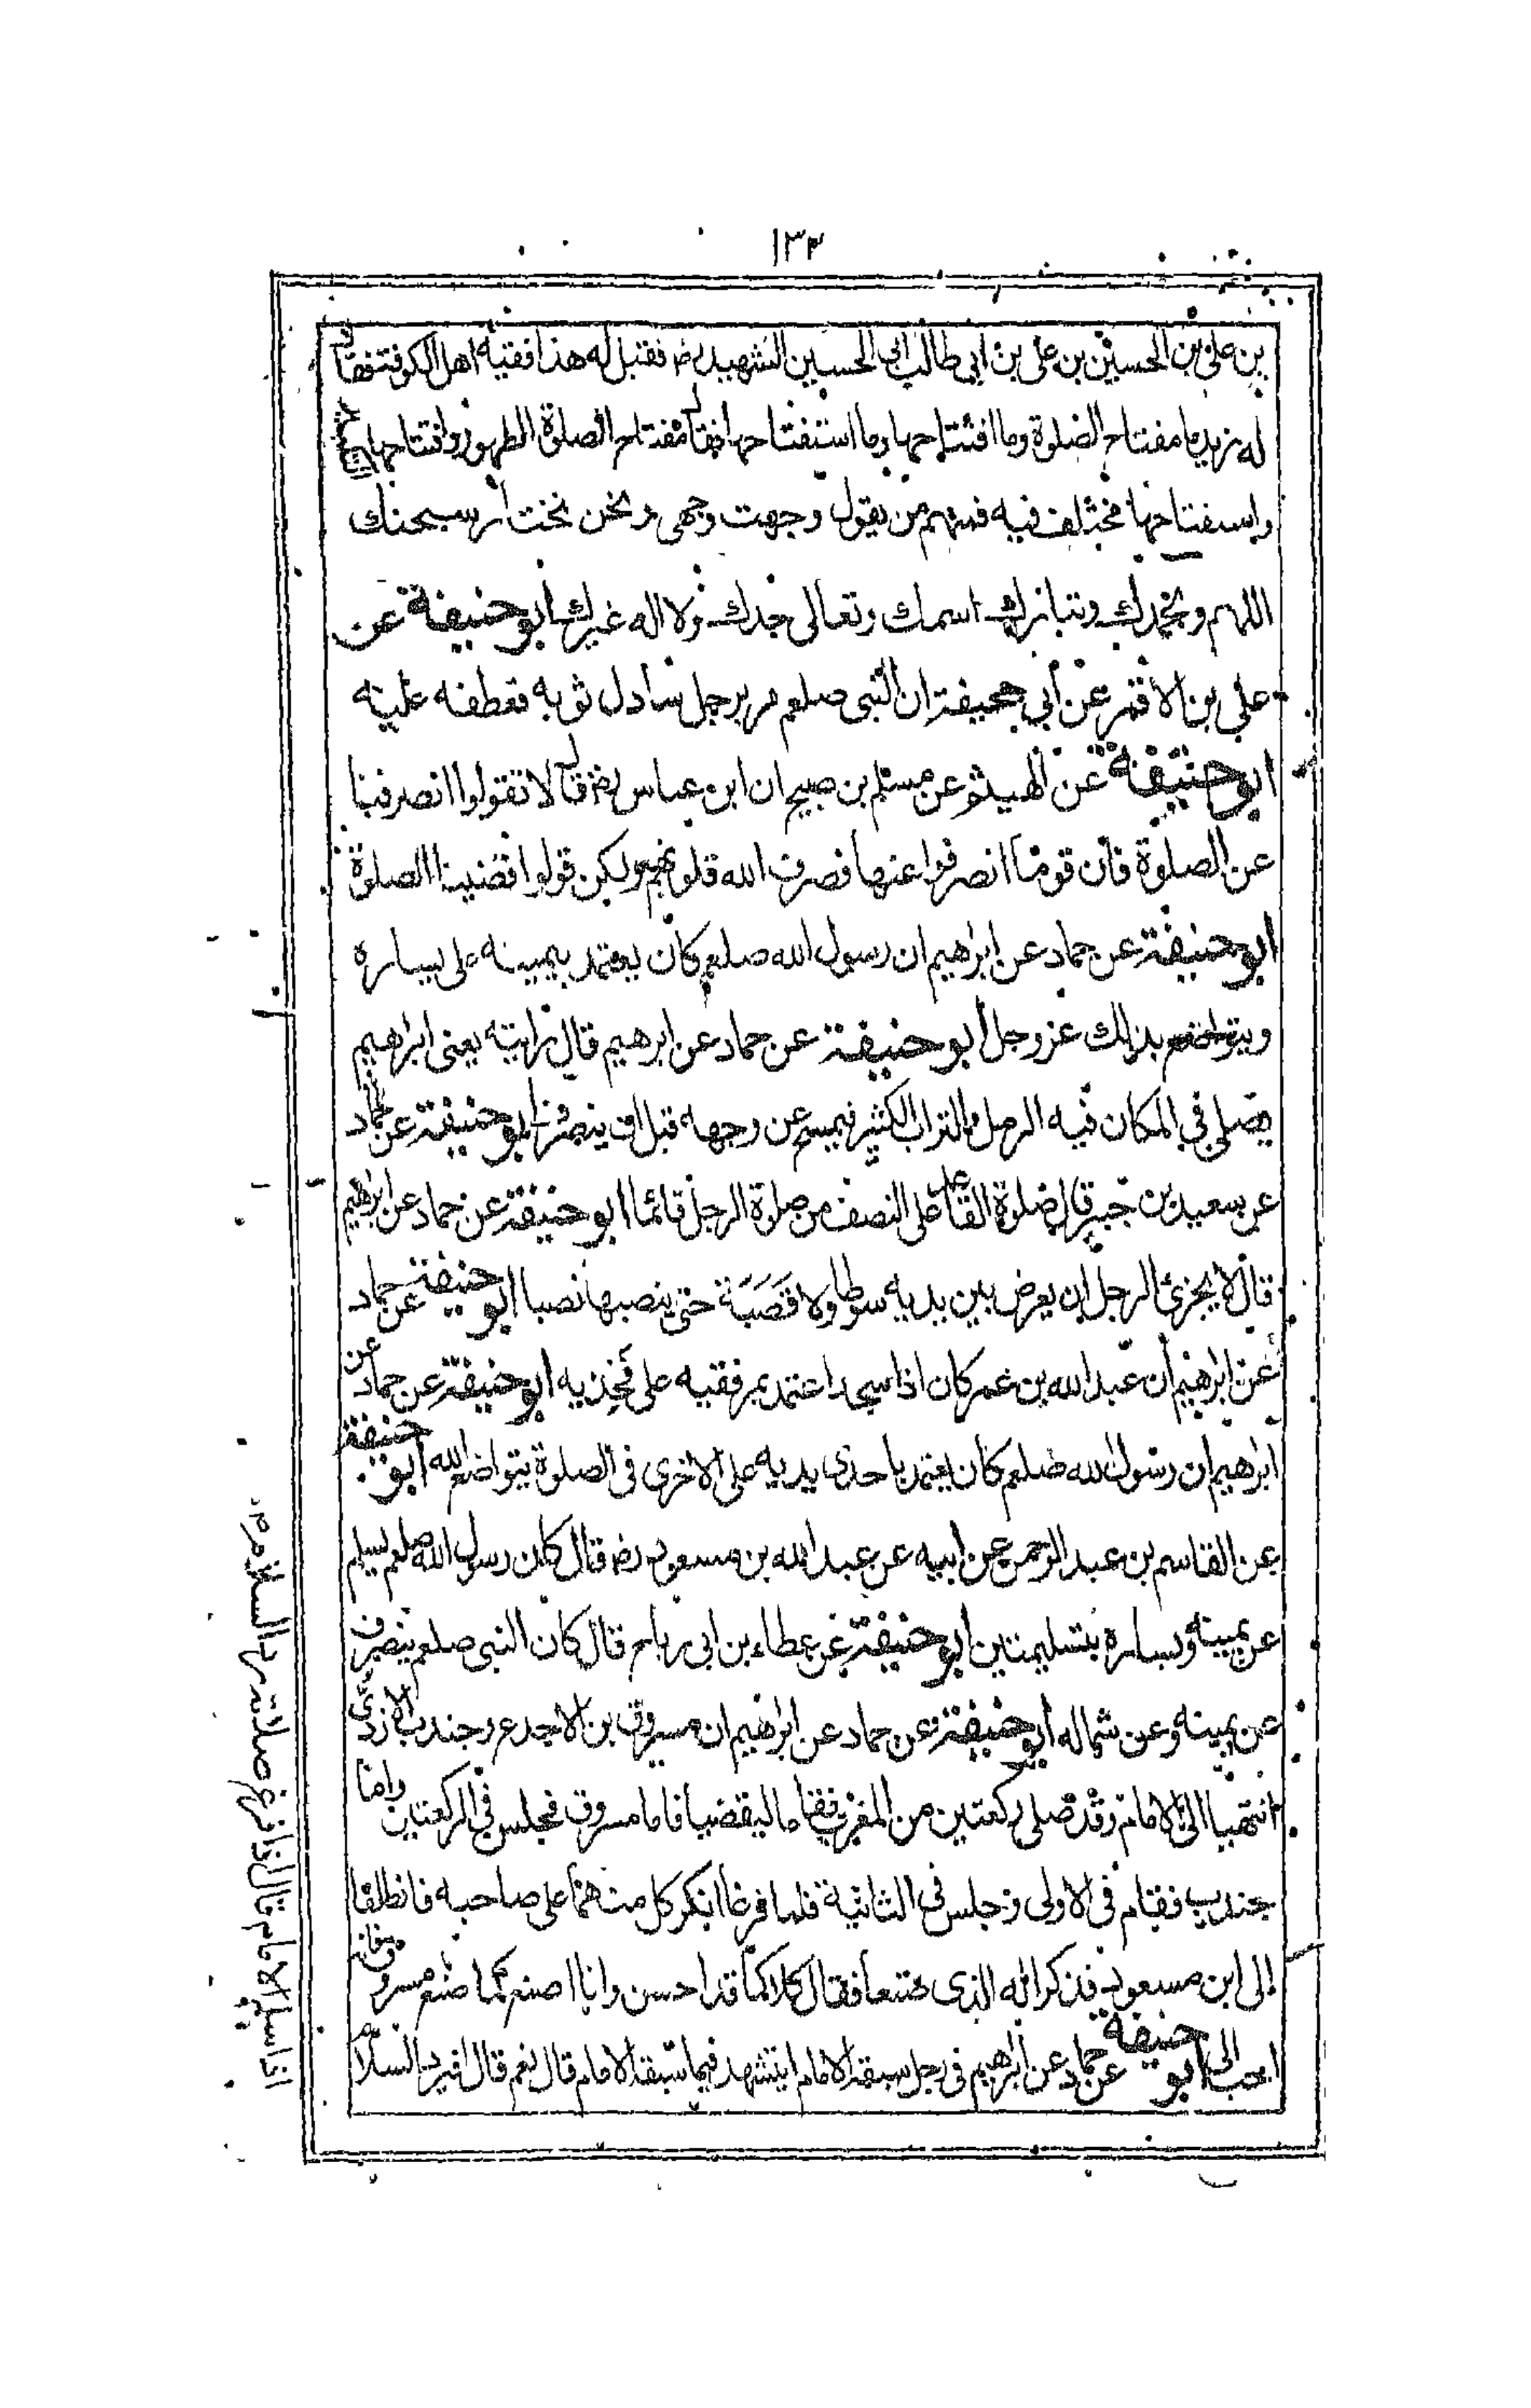 ١٣٢
بن على بن الحسين بن على بن ابى طالب ابى الحسين الشهيد رض فقيل له هذا فقيه اهل الكوفة فقال
له زيد ما مفتاح الصلوة وما افتتاحها وما استفتاحها فقال مفتاح الصلوة الطهور وافتتاحها التكبير
واستفتاحها مختلف فيه فمنهم من يقول وجهت وجهى ونحن نختار سبحنك
اللهم وبحمدك وتبارك اسمك وتعالى جدك ولا اله غيرك ابو حنيفة عن
على بن الاقمر عن أبي جحيفة ان النبى صلعم مر برجل سادل ثوبه فعطفه عليه
ابو حنيفة عن الهيثم عن مسلم بن صبيح ان ابن عباس رض قال لا تقولوا انصرفنا
عن الصلوة فان قوما انصرفوا عنها فصرف الله قلوبهم ولكن قولوا قضينا الصلوة
ابو حنيفة عن حماد عن ابرهيم ان رسول الله صلعم كان يعتمد بيمينه على يساره
ويتواضع بذلك عز وجل أبو حنيفة عن حماد عن ابرهيم قال رايته يعنى ابرهيم
يصلى في المكان فيه الرمل والتراب الكثير فيمسح عن وجهه قبل ان ينصرف ابو حنيفة عن حماد
عن سعيد بن جبير قال صلوة القاعد على النصف من صلوة الرجل قائما ابو حنيفة عن حماد عن ابرهيم
قال لا يجزئ الرجل ان يعرض بين يديه سوطا ولا قَصَبَة حتى ينصبها نصبا ابو حنيفة عن حماد
عن ابرهيم أن عبد الله بن عمر كان اذا سجد اعتمد بمرفقيه على فخذيه ابو حنيفة عن حماد عن
ابرهيم ان رسول الله صلعم كان يعتمد باحدى يديه على الاخرى فى الصلوة يتواضع لله ابو حنيفة
عن القاسم بن عبد الرحمن عن ابيه عن عبد الله بن مسعود رض قال كان رسول الله صلعم يسلم
عن يمينه ويساره بتسليمتين ابو حنيفة عن عطاء بن ابى رباح قال كان النبى صلعم ينصرف
عن يمينه وعن شماله أبو حنيفة عن حماد عن ابرهيم ان مسروق بن الاجدع وجندب الازدى
انتهيا الى الامام وقد صلى ركعتين من المغرب فقاما ليقضيا فاما مسروق فجلس في الركعتين واما
جندب فقام فى الاولى وجلس فى الثانية فلما فرغا انكر كل منهما على صاحبه فانطلقا
إلى ابن مسعود فذكرا له الذى صنعا فقال كلاكما قد احسن وانا اصنع كما صنع مسروق فانه
احب الى ابو حنيفة عن حماد عن ابرهيم فى رجل سبقه الامام ايتشهد فيما سبقه الامام قال نعم قال افيرد السلام
اذا سلم الامام قال اذا فرغ من صلاته رد السلام